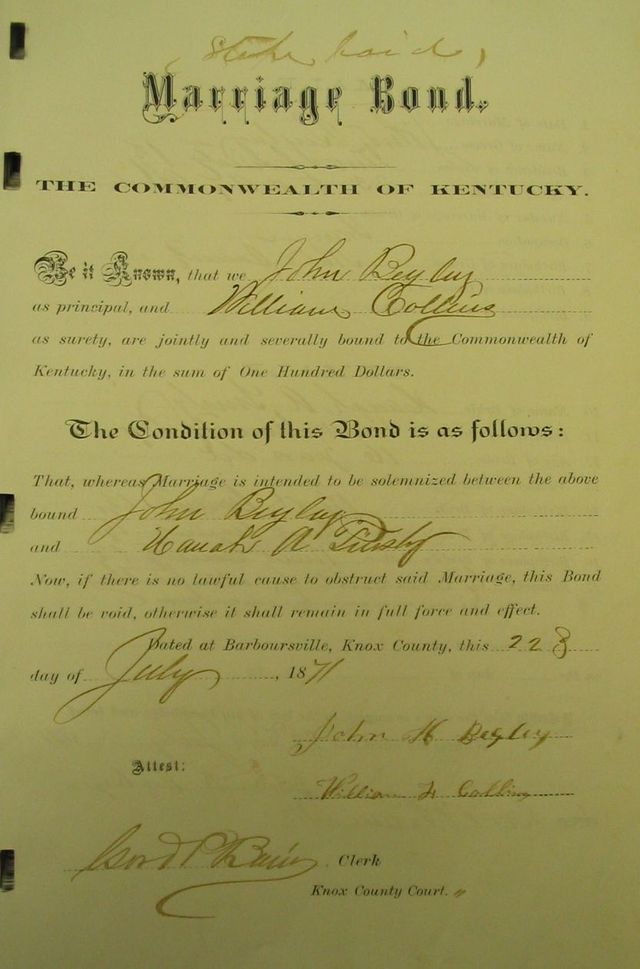 Marriage Bond.
THE COMMONWEALTH OF KENTUCKY.
Be it Known, that we John Begley
as principal, and William Collins
as surety, are jointly and severally bound to the Commonwealth of
Kentucky, in the sum of One Hundred Dollars.
The Condition of this Bond is as follows:
That, whereas Marriage is intended to be solemnized between the above
bound John Begley
and Hanah A
Now, if there is no lawful cause to obstruct said Marriage, this Bond
shall be void, otherwise it shall remain in full force and effect.
Dated at Barboursville, Knox County, this 22
day of July, 1871
John H Begley
Attest:
William Collins
Clerk
Knox County Court.